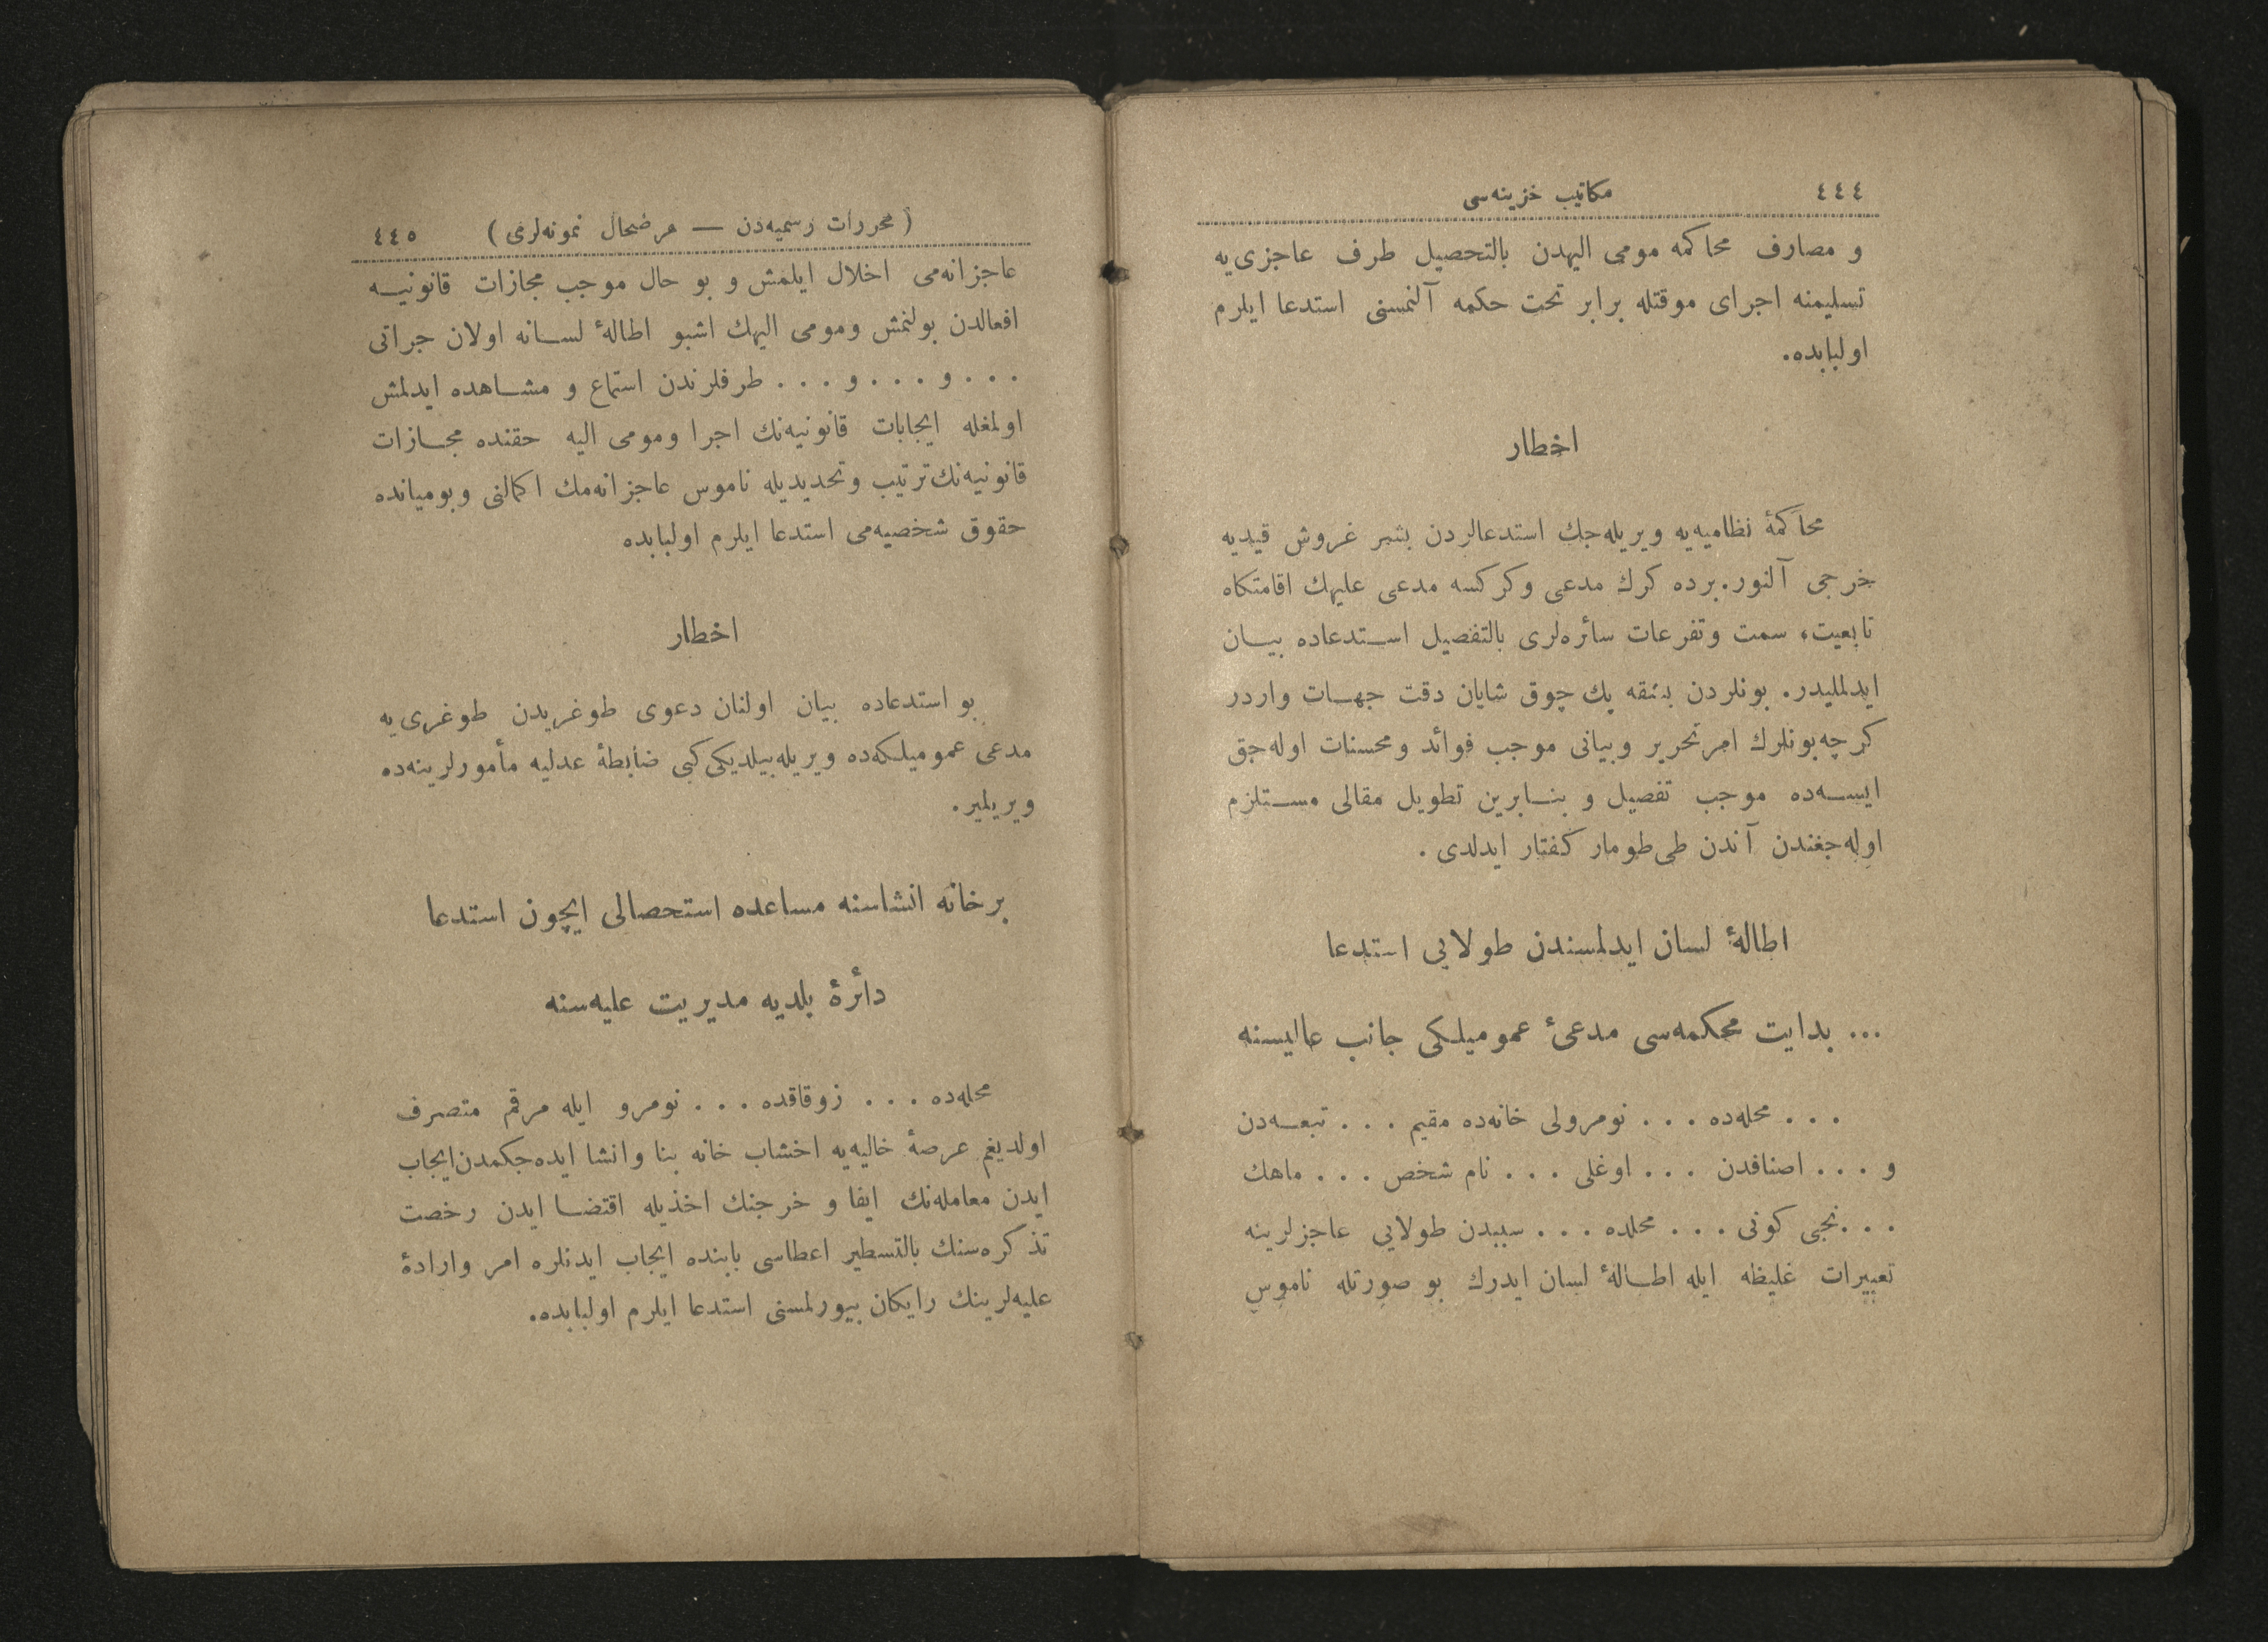 ٤٤٤ مكاتيب خزينه‌سى
و مصارف محاكمه مومى اليهدن بالتحصيل طرف عاجزى‌يه
تسليمنه اجراى موقتله برابر تحت حكمه آلنمسنى استدعا ايلرم
اولبابده.
اخطار
محاكمۀ نظاميه‌يه ويريله‌جك استدعالردن بشر غروش قيديه
خرجى آلنور. برده كرك مدعى و كركسه مدعى عليهك اقامتكاه
تابعيت، سمت و تفرعات سائره‌لرى بالتفصيل استدعاده بيان
ايدلمليدر. بونلردن بشقه پك چوق شايان دقت جهات واردر
كرچه بونلرك امر تحرير و بيانى موجب فوائد و محسنات اوله‌جق
ايسه‌ده موجب تفصيل و بنابرين تطويل مقالى مستلزم
اوله‌جغندن آندن طى طومار كفتار ايدلدى .
اطالۀ لسان ايدلمسندن طولايى استدعا
... بدايت محكمه‌سى مدعئ عموميلكى جانب عاليسنه
. . . محله‌ده . . . نومرولى خانه‌ده مقيم . . . تبعه‌دن
و . . . اصنافدن . . . اوغلى . . . نام شخص . . . ماهك
. . . نجى كونى . . . محلده . . . سببدن طولايى عاجزلرينه
تعبيرات غليظه ايله اطالۀ لسان ايدرك بو صورتله ناموس
(محررات رسميه‌دن — عرضحال نمونه‌لرى) ٤٤٥
عاجزانه‌مى اخلال ايلمش و بو حال موجب مجازات قانونيه
افعالدن بولنمش و مومى اليهك اشبو اطالۀ لسانه اولان جراتى
. . . و . . . و . . . طرفلرندن استماع و مشاهده ايدلمش
اولمغله ايجابات قانونيه‌نك اجرا و مومى اليه حقنده مجازات
قانونيه‌نك ترتيب و تحديديله ناموس عاجزانه‌مك اكمالنى و بوميانده
حقوق شخصيه‌مى استدعا ايلرم اولبابده
اخطار
بو استدعاده بيان اولنان دعوى طوغريدن طوغرى‌يه
مدعى عموميلكه‌ده ويريله‌بيلديكى كبى ضابطۀ عدليه مأمورلرينه‌ده
ويريلير.
برخانه انشاسنه مساعده استحصالى ايچون استدعا
دائرۀ بلديه مديريت عليه‌سنه
محله‌ده . . . زوقاقده . . . نومرو ايله مرقم متصرف
اولديغم عرصۀ خاليه‌يه اخشاب خانه بنا و انشا ايده‌جكمدن ايجاب
ايدن معامله‌نك ايفا و خرجنك اخذيله اقتضا ايدن رخصت
تذكره‌سنك بالتسطير اعطاسى بابنده ايجاب ايدنلره امر و ارادۀ
عليه‌لرينك رايكان بيورلمسنى استدعا ايلرم اولبابده.